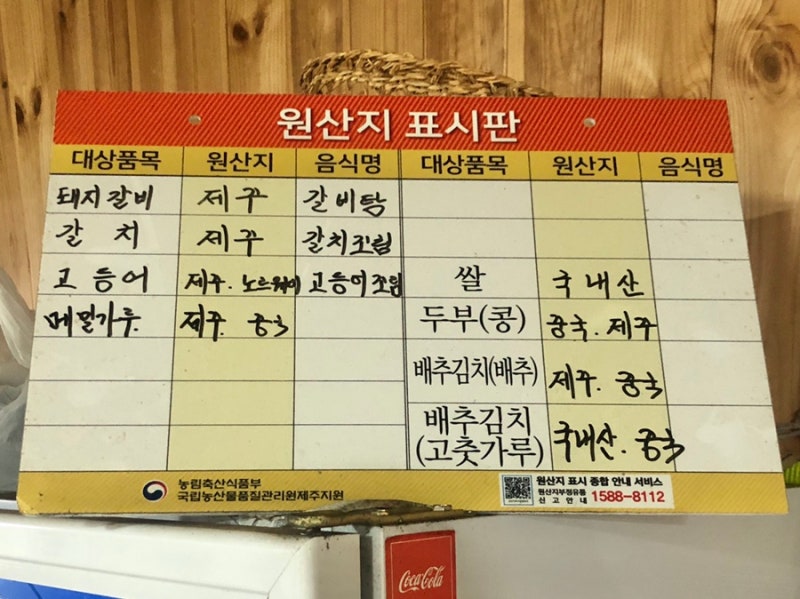 원산지 표시판
대상품목 원산지 음식명 대상품목 원산지 음식명
돼지갈비 제주 갈비탕
갈치 제주 갈치조림
고등어 제주. 노르웨이 고등어조림 쌀 국내산
메밀가루 제주. 중국 두부(콩) 중국. 제주
배추김치(배추) 제주. 중국
배추김치
(고춧가루) 국내산. 중국
농림축산식품부
국립농산물품질관리원제주지원
원산지 표시 종합 안내 서비스
원산지부정유통
신고안내 1588-8112
Coca-Cola